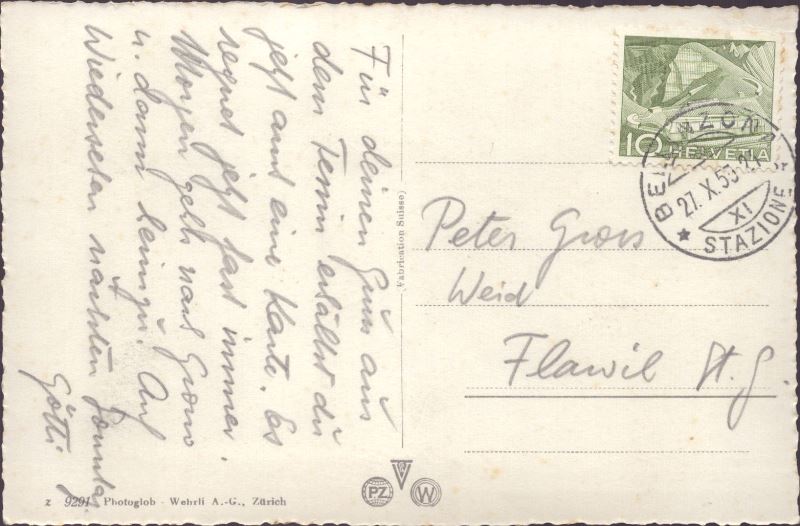 Für deinen Gruss aus
dem Tessin erhältst du
jetzt auch eine Karte. Es
regnet jetzt fast immer.
Morgen geht's nach Grono
u. dann heimzu. Auf
Wiedersehen nächsten Sonntag
Götti
(Fabrication Suisse)
10 HELVETIA
BELLINZONA
27.X.55-21
XI
STAZIONE
Peter Gross
Weid
Flawil St. G.
Z 9291 Photoglob - Wehrli A.-G., Zürich
PZ
W